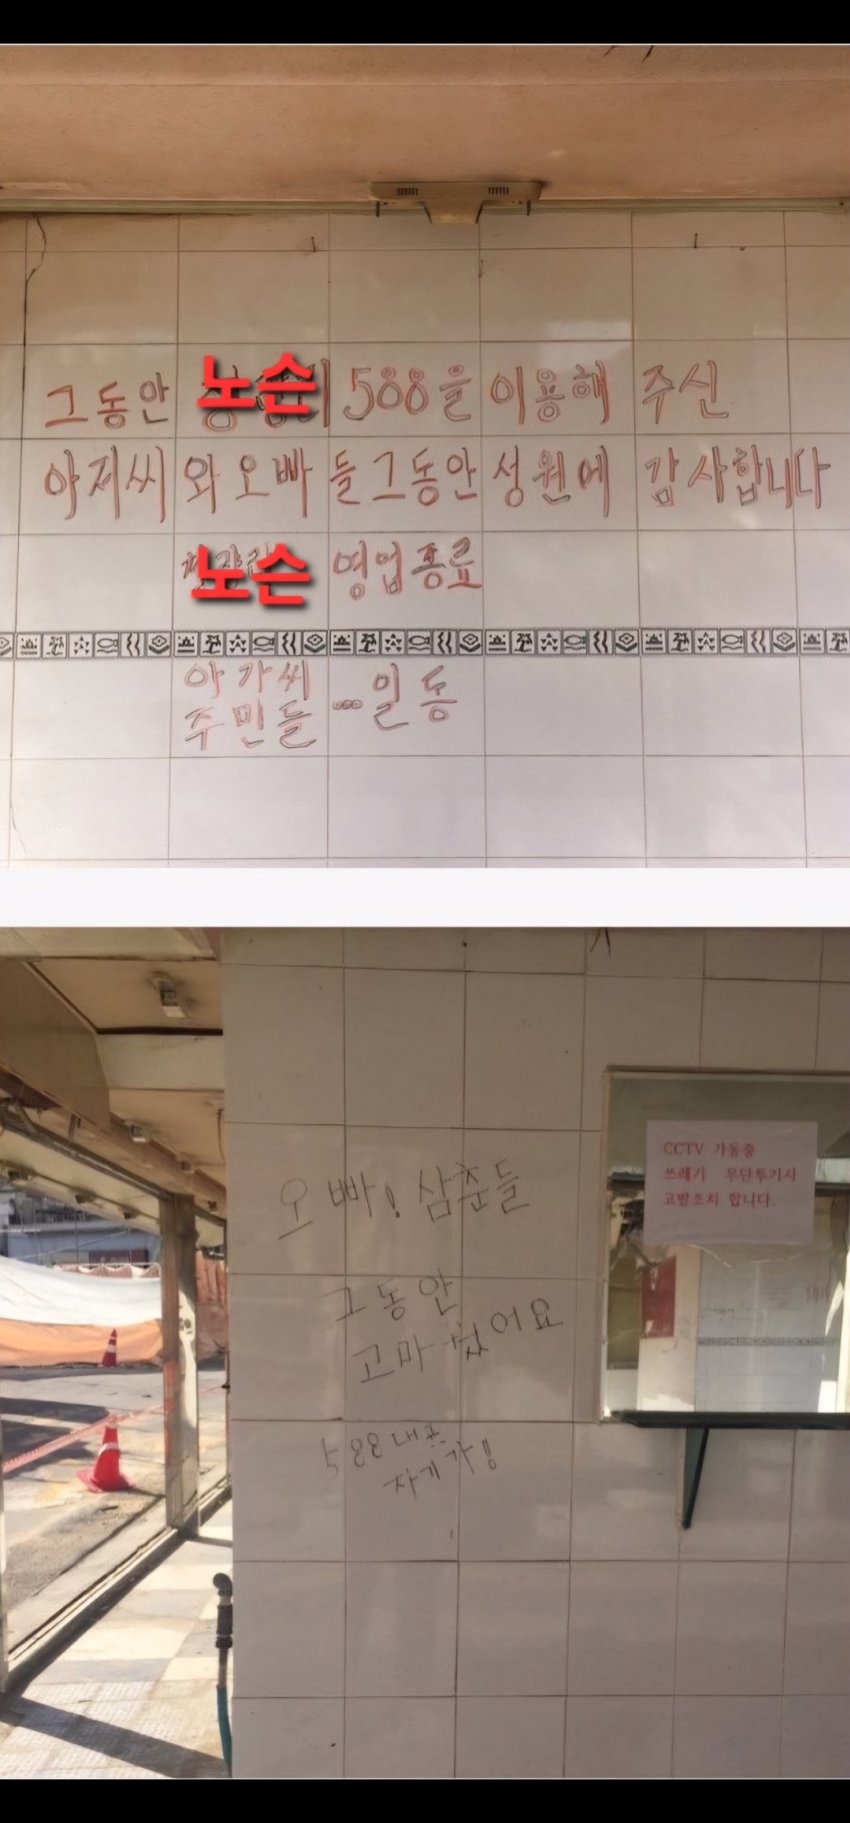 그동안 노슨 588을 이용해 주신
아저씨와 오빠들 그동안 성원에 감사합니다
노슨 영업종료
아가씨
주민들 ...일동
오빠! 삼춘들
그동안
고마웠어요
588 대표
자기가!!
CCTV 가동중
쓰레기 무단투기시
고발조치 합니다.